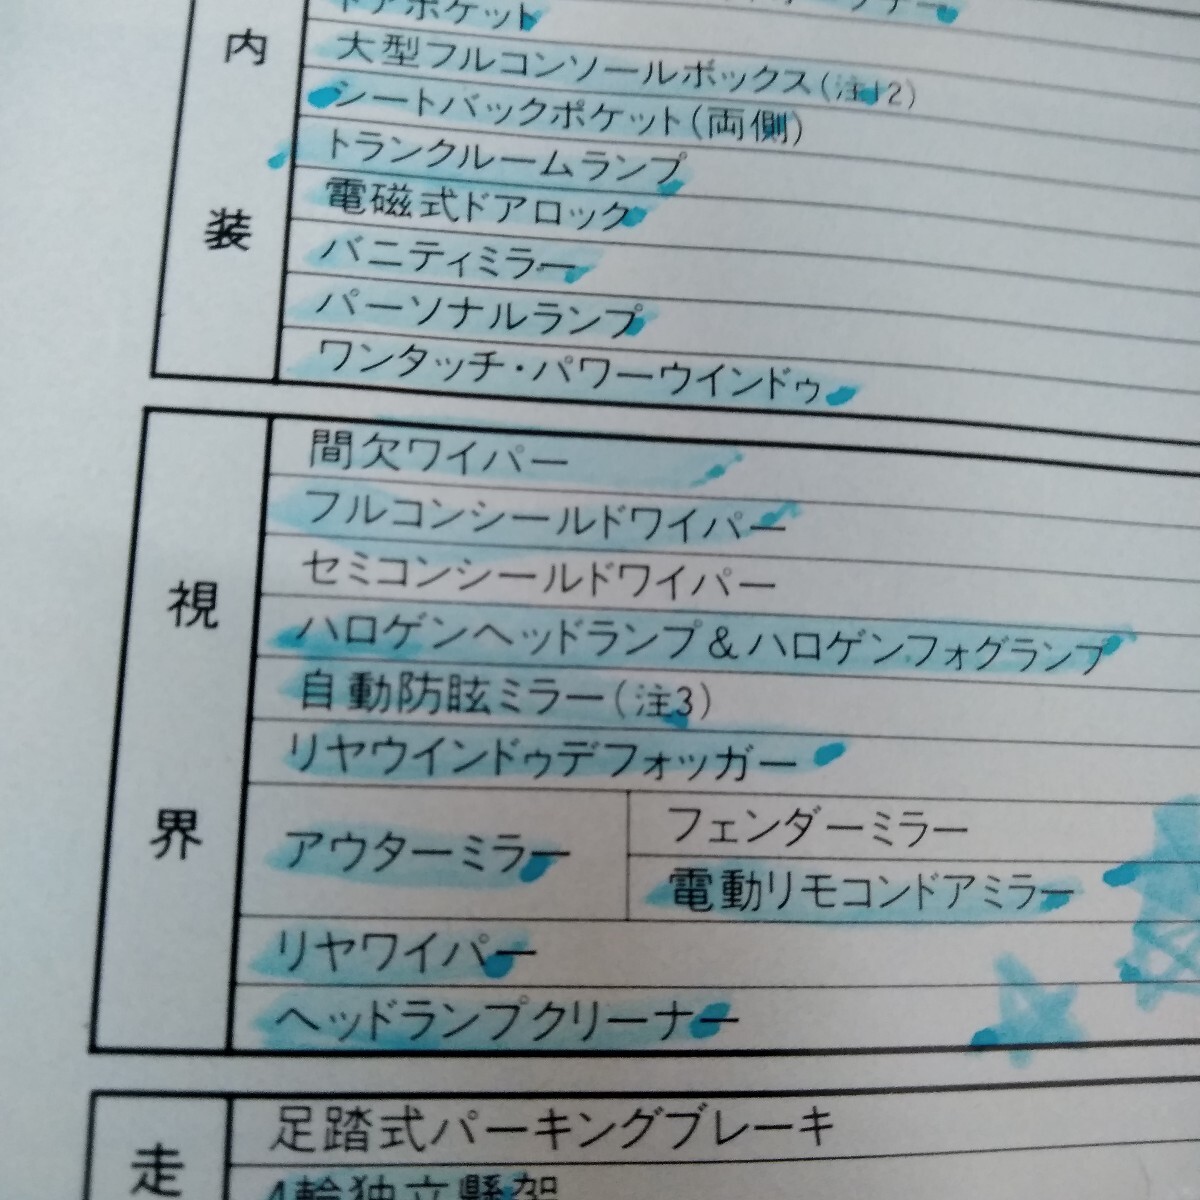 ドアポケット
大型フルコンソールボックス(注12)
シートバックポケット(両側)
トランクルームランプ
電磁式ドアロック
バニティミラー
パーソナルランプ
ワンタッチ・パワーウインドゥ
内装
間欠ワイパー
フルコンシールドワイパー
セミコンシールドワイパー
ハロゲンヘッドランプ&ハロゲンフォグランプ
自動防眩ミラー(注3)
リヤウインドゥデフォッガー
アウターミラー
フェンダーミラー
電動リモコンドアミラー
リヤワイパー
ヘッドランプクリーナー
視界
足踏式パーキングブレーキ
4輪独立懸架
走